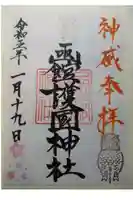 神威奉拝
函館護國神社
令和三年
一月十九日